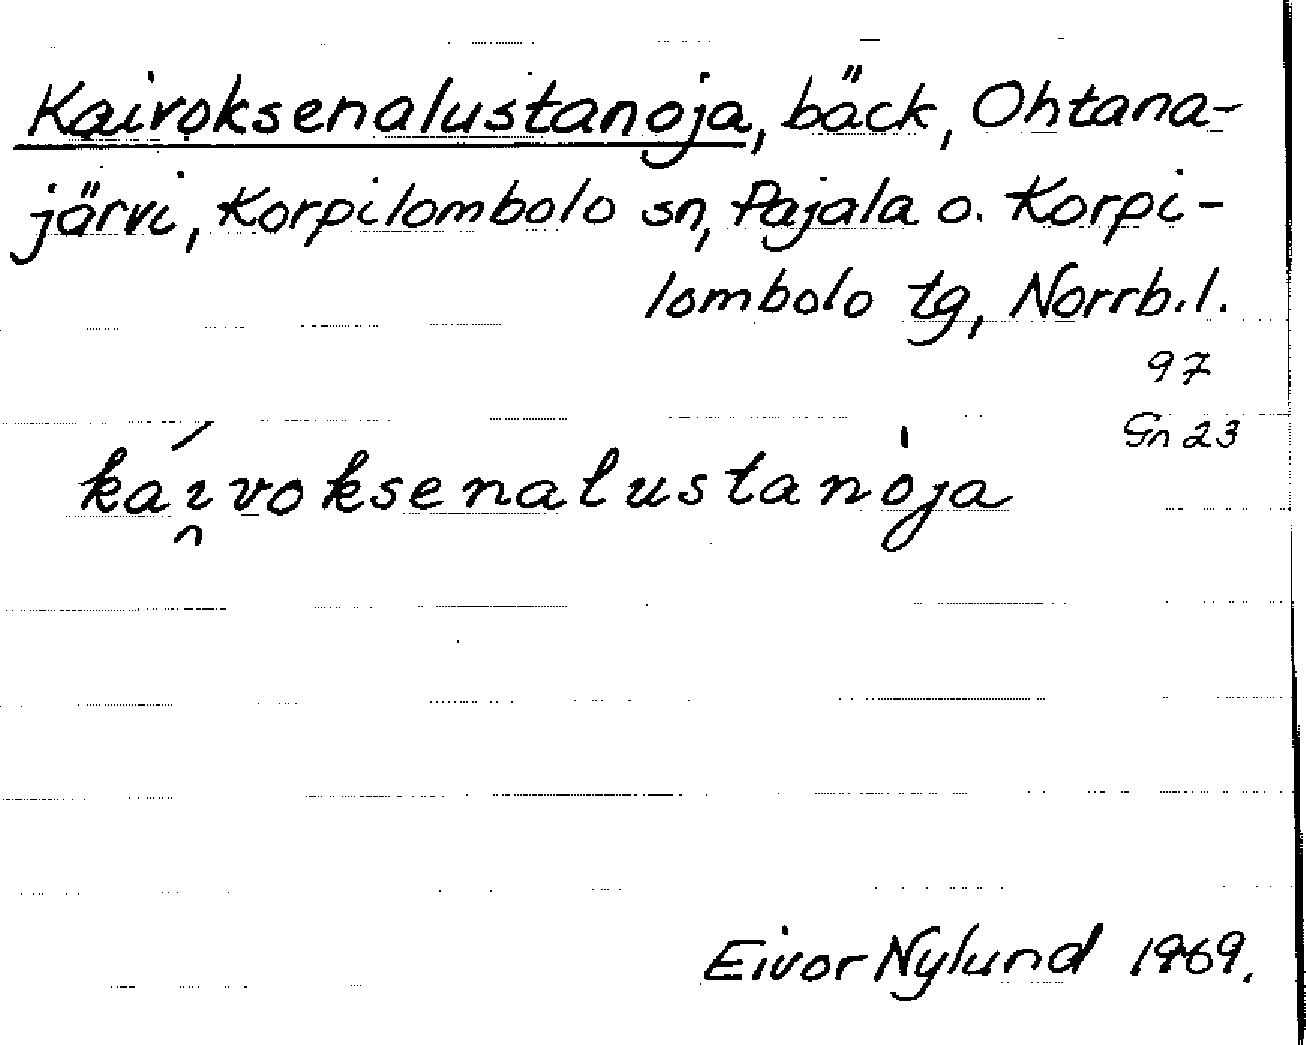 Kaivoksenalustanoja, bäck, Ohtana-
järvi, Korpilombolo sn, Pajala o. Korpi-
lombolo tg, Norrb.l.
97
Gn 23
kái̯voksenalustanòja
Eivor Nylund 1969.